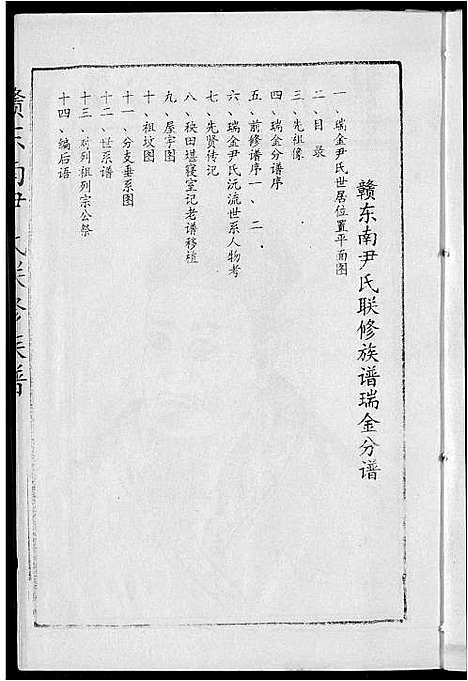 赣东南尹氏联修族谱瑞金分谱
一、瑞金尹氏世居位置平面图
二、目录
三、先祖像
四、瑞金分谱序
五、前修谱序一、二
六、瑞金尹氏沅流世系人物考
七、先贤传记
八、秧田堪寝室记老谱移植
九、屋宇图
十、祖坟图
十一、分支垂系图
十二、世系谱
十三、对列祖列宗公祭
十四、编后语
赣东南尹氏联修族谱